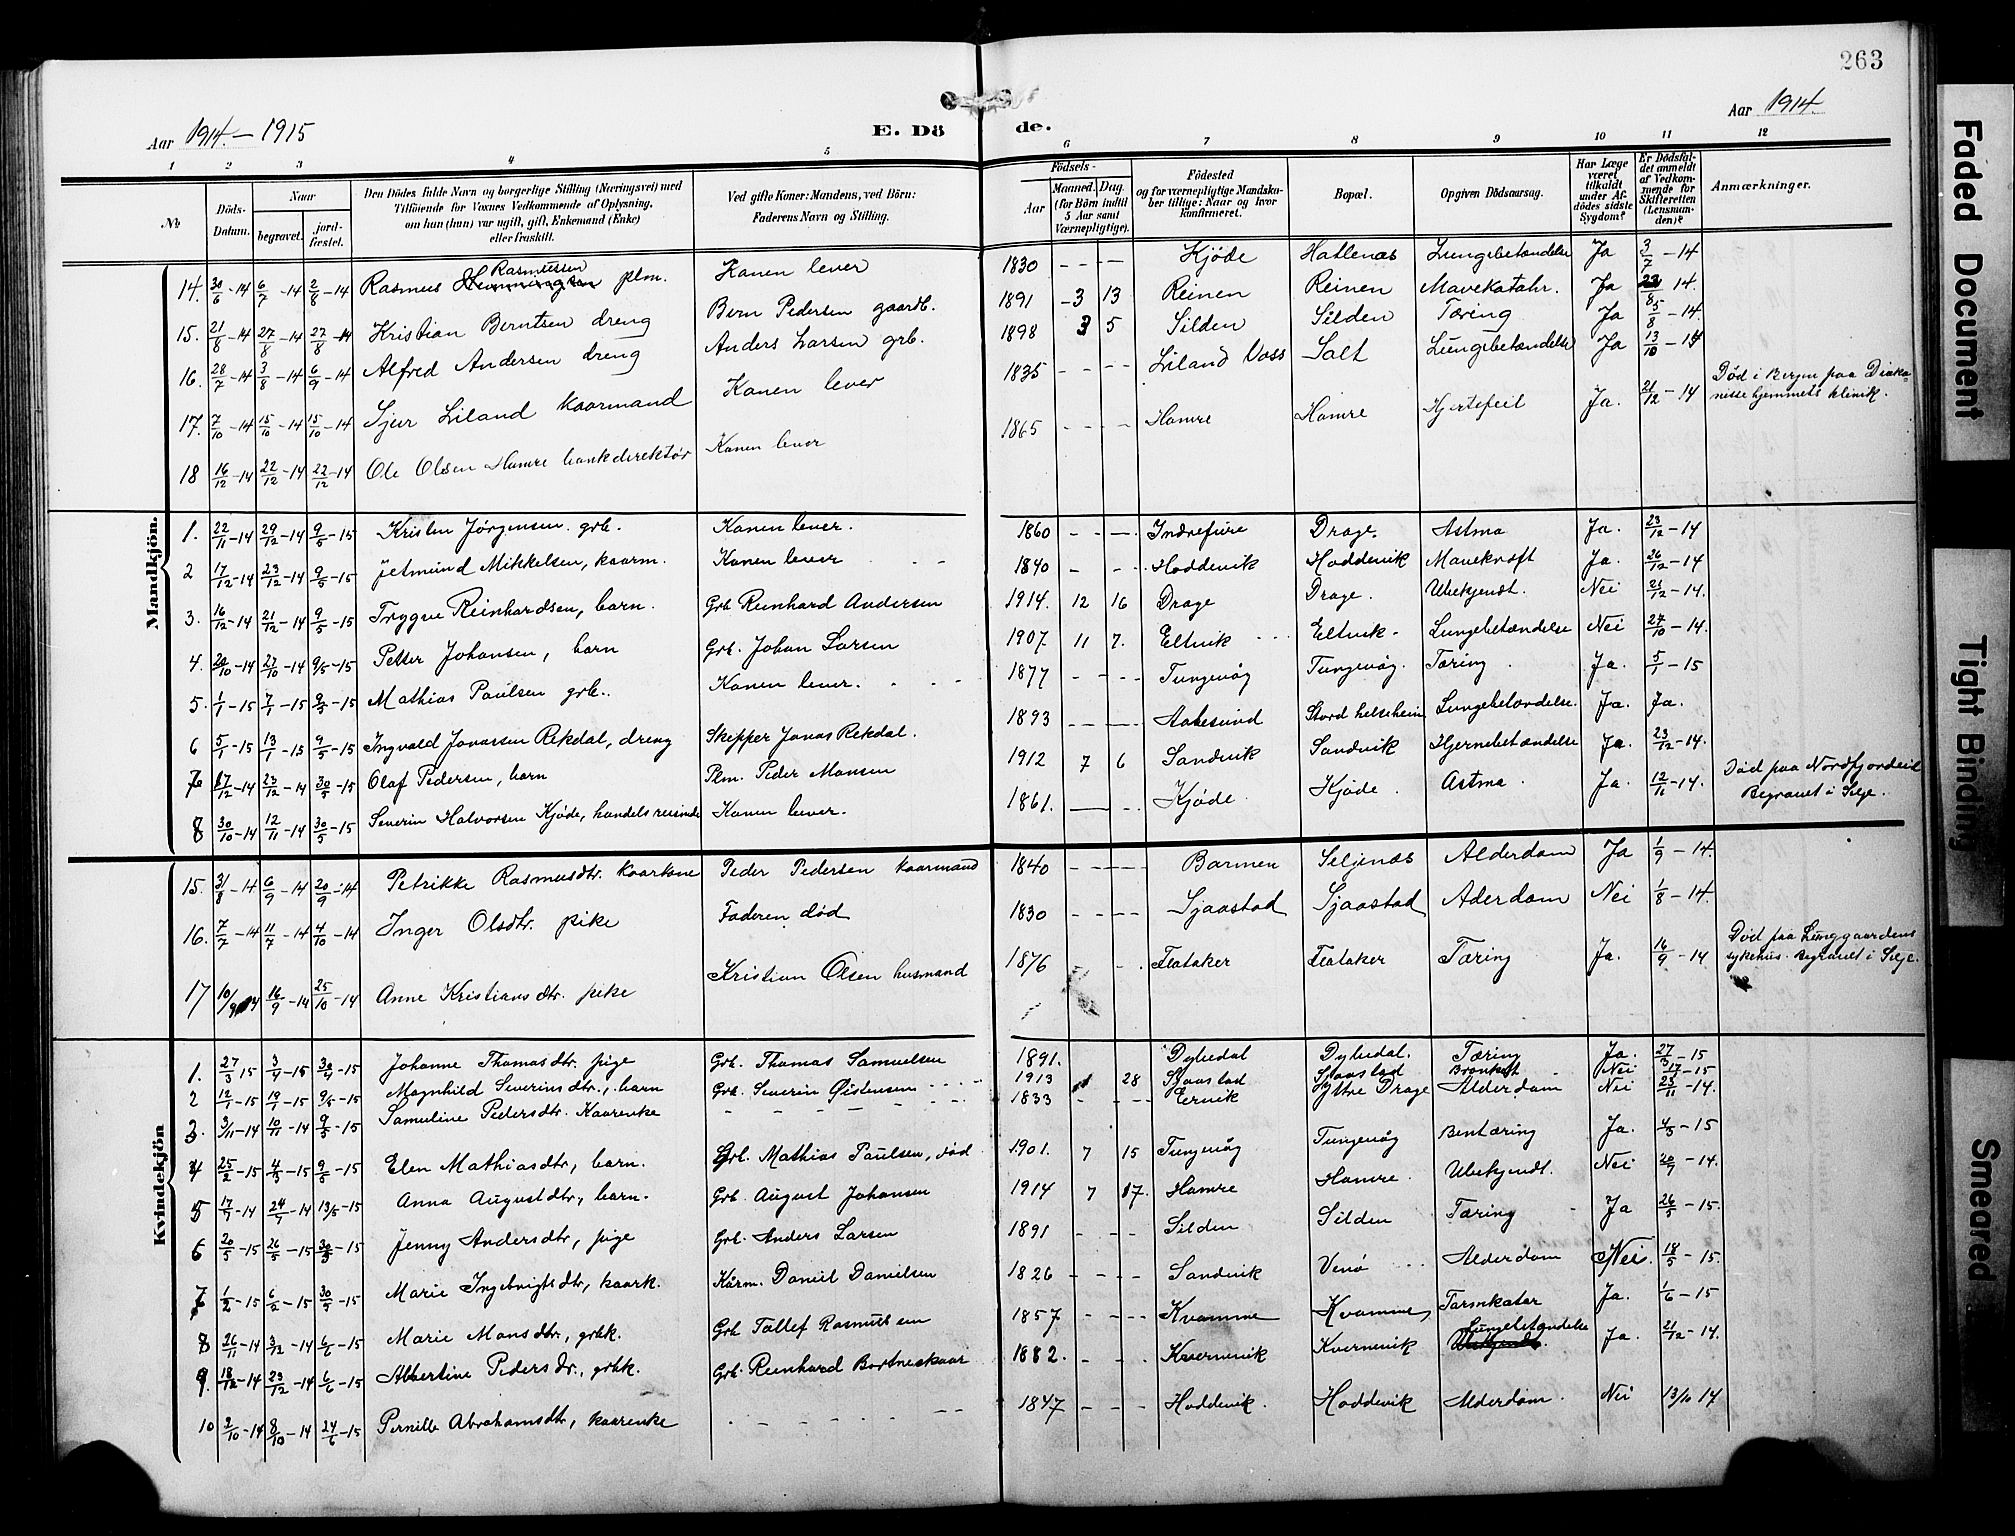 263
Aar 1914 – 1915 E. Dö de. Aar 1914.
1 2 3 4 5 6 7 8 9 10 11 12
No. Döds-Datum. Naar begravet. jordfæstet. Den Dödes fulde Navn og borgerlige Stilling (Næringsvei) med Tilföiende for Voxnes Vedkommende af Oplysning, om han (hun) var ugift, gift, Enkemand (Enke) eller fraskilt. Ved gifte Koner: Mandens, ved Börn: Faderens Navn og Stilling. Födsels- Aar Maaned. Dag. (for Börn indtil 5 Aar samt Værnepligtige). Födested og for værnepligtige Mandskaber tillige: Naar og hvor konfirmeret. Bopæl. Opgiven Dödsaarsag. Har Læge været tilkaldt under Afdödes sidste Sygdom? Er Dödsfaldet anmeldt af Vedkommende for Skifteretten (Lensmanden)? Anmærkninger.
Mandkjön.
14. 30/6 -14 6/7 -14 2/8 -14 Rasmus Rasmussen plm. Konen lever 1830 - - - Kjøde Hatlenæs Lungebetændelse Ja 3/7 -14
15. 21/8 -14 27/8 -14 27/8 -14 Kristian Berntsen dreng Bern Pedersen gaardb. 1891 -3 13 Reinen Reinen Mavekatahr. Ja 22/8 14.
16. 28/7 -14 3/8 -14 6/9 -14 Alfred Andersen dreng Anders Larsen grb. 1898 3 5 Silden Silden Tæring Ja 5/8 -14
17. 7/10 -14 15/10 -14 15/10 -14 Sjur Liland kaarmand Konen lever 1835 - - - - Liland Voss Salt Lungebetændelse Ja 13/10 -14
18 16/12 -14 22/12 -14 22/12 -14 Ole Olsen Hamre bankdirektør Konen lever 1865 - - - - Hamre Hamre Hjertefeil Ja. 21/12 -14 Død i Bergen paa Diakonissehjemmets klinik.
1. 22/11 -14 29/12 -14 9/5 -15 Kristen Jørgensen. grb. Konen lever. 1860 - - - Indrefure Drage. Astma Ja. 23/12 -14
2 17/12 -14 23/12 -14 9/5 -15 Jetmund Mikkelsen, kaarm. Konen lever 1840 - - - Hoddevik Hoddevik Mavekræft Ja. 26/12 -14
3. 16/12 -14 21/12 -14 9/5 -15 Trygve Reinhardsen, barn. Grb Reinhard Andersen 1914. 12 16 Drage Drage. Ubekjendt. Nei 21/12 -14.
4. 20/10 -14 27/10 -14 9/5 -15 Petter Johansen, barn Grb. Johan Larsen 1907. 11 7. Eltvik Eltvik- Lungebetændelse Nei 27/10 -14.
5. 1/1 -15 7/1 -15 9/5 -15 Mathias Paulsen grb. Konen lever. 1877 - - - - Tungevåg Tungevåg. Tæring Ja. 5/1 -15
6 5/1 -15 13/1 -15 9/5 -15 Ingvald Jonassen Rekdal, dreng Skepper Jonas Rekdal. 1893 - - - - Aalesund Stord helseheim Lungebetændelse. Ja. Ja.
7 17/12 -14 23/12 -14 30/5 -15 Olaf Pedersen, barn Plm. Peder Monsen 1912 7 6 Sandvik Sandvik Hjernebetændelse Ja. 23/12 -14.
8 30/10 -14 12/11 -14 30/5 -15 Severin Halvorsen Kjøde, handelsreisende Konen lever. 1861. - - - Kjøde. Kjøde. Astma Ja. 12/11 -14. Død paa Nordfjordeid Begravet i Selje.
Kvindekjön
15. 31/8 -14 6/9 -14 20/9 -14 Petrikke Rasmusdtr. kaarkone Peder Pedersen kaarmand 1840 - - - - Barmen Seljenæs Alderdom Ja 1/9 -14.
16. 7/7 -14 11/7 -14 4/10 -14 Inger Olsdtr. pike Faderen død 1830 - - - - Sjaastad Sjaastad Aderdom Nei 1/8 -14.
17 10/9 14 16/9 -14 25/10 -14 Anne Kristiansdtr. pike Kristian Olsen husmand 1876 - - - Flataker Flataker Tæring Ja. 16/9 -14 Død paa Lunggaardens sykehus. Begravet i Selje.
1. 27/3 15 3/4 -15 30/4 -15 Johanne Thomasdtr. pige Grb. Thomas Samuelsen 1891. Dybedal Dybedal. Tæring Ja. 27/3 -15
2 12/1 -15 19/1 -15 9/5 -15 Magnhild Severinsdtr., barn Grb. Severin Øistensen 1913 28 Sjaastad Sjaastad Bronkitt Nei 17 -15
3. 3/11 -14 10/11 -14 9/5 -15 Samuline Pedersdtr. Kaarenke - - - - - 1833 - - - - Ervik Yttre Drage Alderdom Nei 23/11 -14.
4 25/2 -15 4/3 -15 9/5 -15 Elen Mathiasdtr, barn. Grb. Mathias Paulsen, død 1901. 7 15 Tungevåg Tungevåg Bentæring Ja. 4/3 -15
5 17/9 -14 24/9 -14 13/5 -15 Anna Augustdtr, barn. Grb. August Johansen 1914 7 17. Hamre Hamre. Ubekjendt. Nei 20/9 -14.
6 20/5 -15 26/5 -15 30/5 -15 Jenny Andersdtr, pige Grb. Anders Larsen 1891 - - - Silden Silden Tæring Ja 26/5 -15.
7 1/2 -15 6/2 -15 30/5 -15 Marie Ingebrigtsdtr, kaark. Kårm. Daniel Danielsen 1826 - - - - Sandvik Venø Alderdom Nei. 18/5 -15.
8 26/11 -14 3/12 -14 6/6 -15 Marie Monsdtr, grbk. Grb Tollef Rasmussen 1857 - - - - Kvamme Kvamme, Tarmkatar Ja. 1/6 -15
9. 18/12 -14 23/12 -14 6/6 -15 Albertine Pedersdr., grbk. Grb. Reinhard Bortneskaar 1882. - - - Kvernevik Kvernevik Lungebetændelse Ja. 21/12 -14.
10 2/10 -14 8/10 -14 24/6 -15 Pernille Abrahamsdtr, kaarenke - - - - - 1847 - - - Hoddevik. Hoddevik Alderdom. Nei 13/10 14
Faded Document
Tight Binding
Smeared